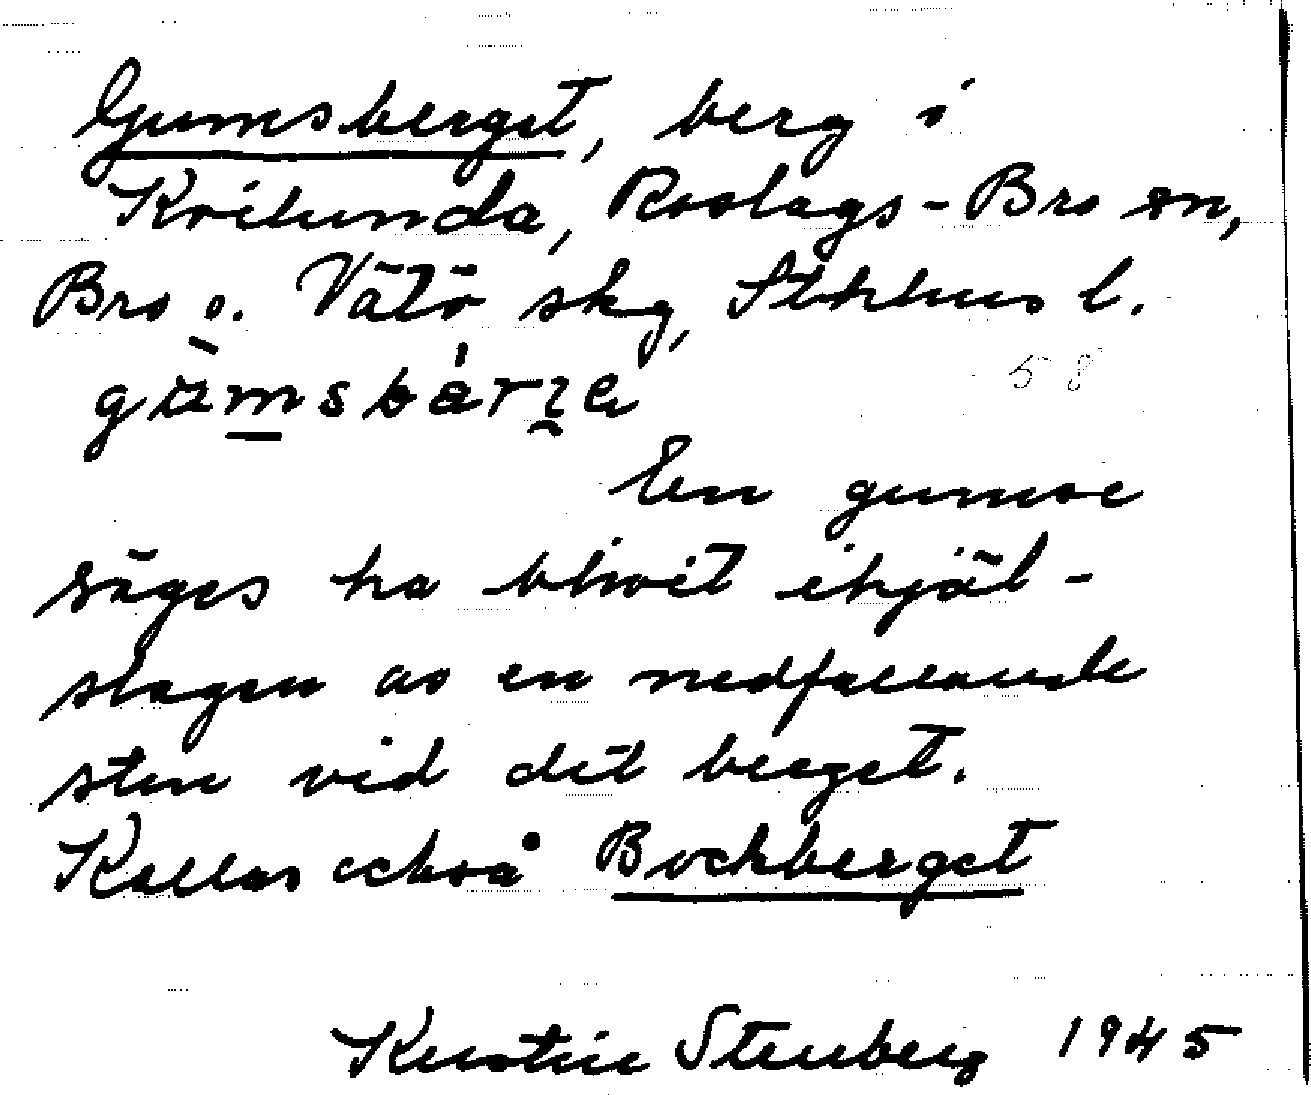 Gumsberget, berg i
Kvilunda, Roslags-Bro sn,
Bro o. Vätö skg, Sthlms l.
58
En gumse
säges ha blivit ihjäl-
slagen av en nedfallande
sten vid det berget.
Kallas också Bockberget
Kerstin Stenberg 1945